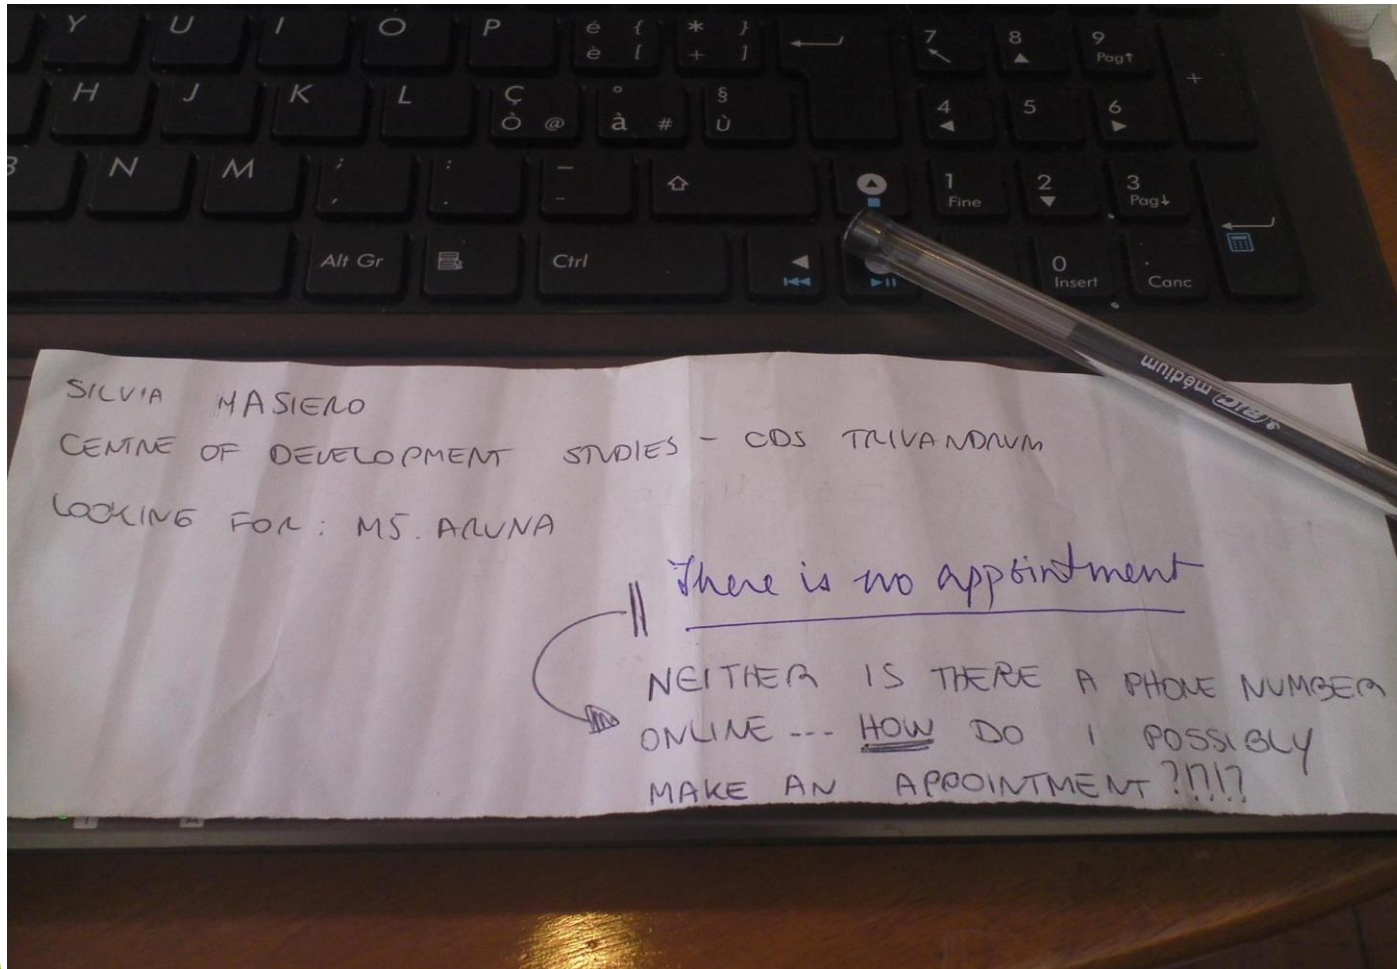 Y U I O P é { * } 7 8 9
è [ + ] Pag↑ +
H J K L Ç ° § 4 5 6
Ò @ à # Ù
N M ; : _ 1 2 3
, . - Fine Pag↓
Alt Gr Ctrl 0 .
Insert Canc
BIC médium
SILVIA MASIERO
CENTRE OF DEVELOPMENT STUDIES - CDS TRIVANDRUM
LOOKING FOR: MS. ARUNA
There is no appointment
NEITHER IS THERE A PHONE NUMBER
ONLINE --- HOW DO I POSSIBLY
MAKE AN APPOINTMENT?!?!?